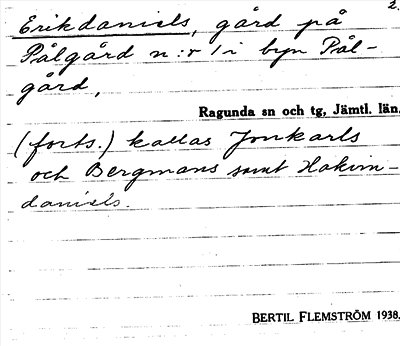 2.
Erikdaniels, gård på
Pålgård n:r 1 i byn Pål-
gård,
Ragunda sn och tg, Jämtl. län.
(forts.) kallas Jonkarls
och Bergmans samt Hakim-
daniels.
BERTIL FLEMSTRÖM 1938.